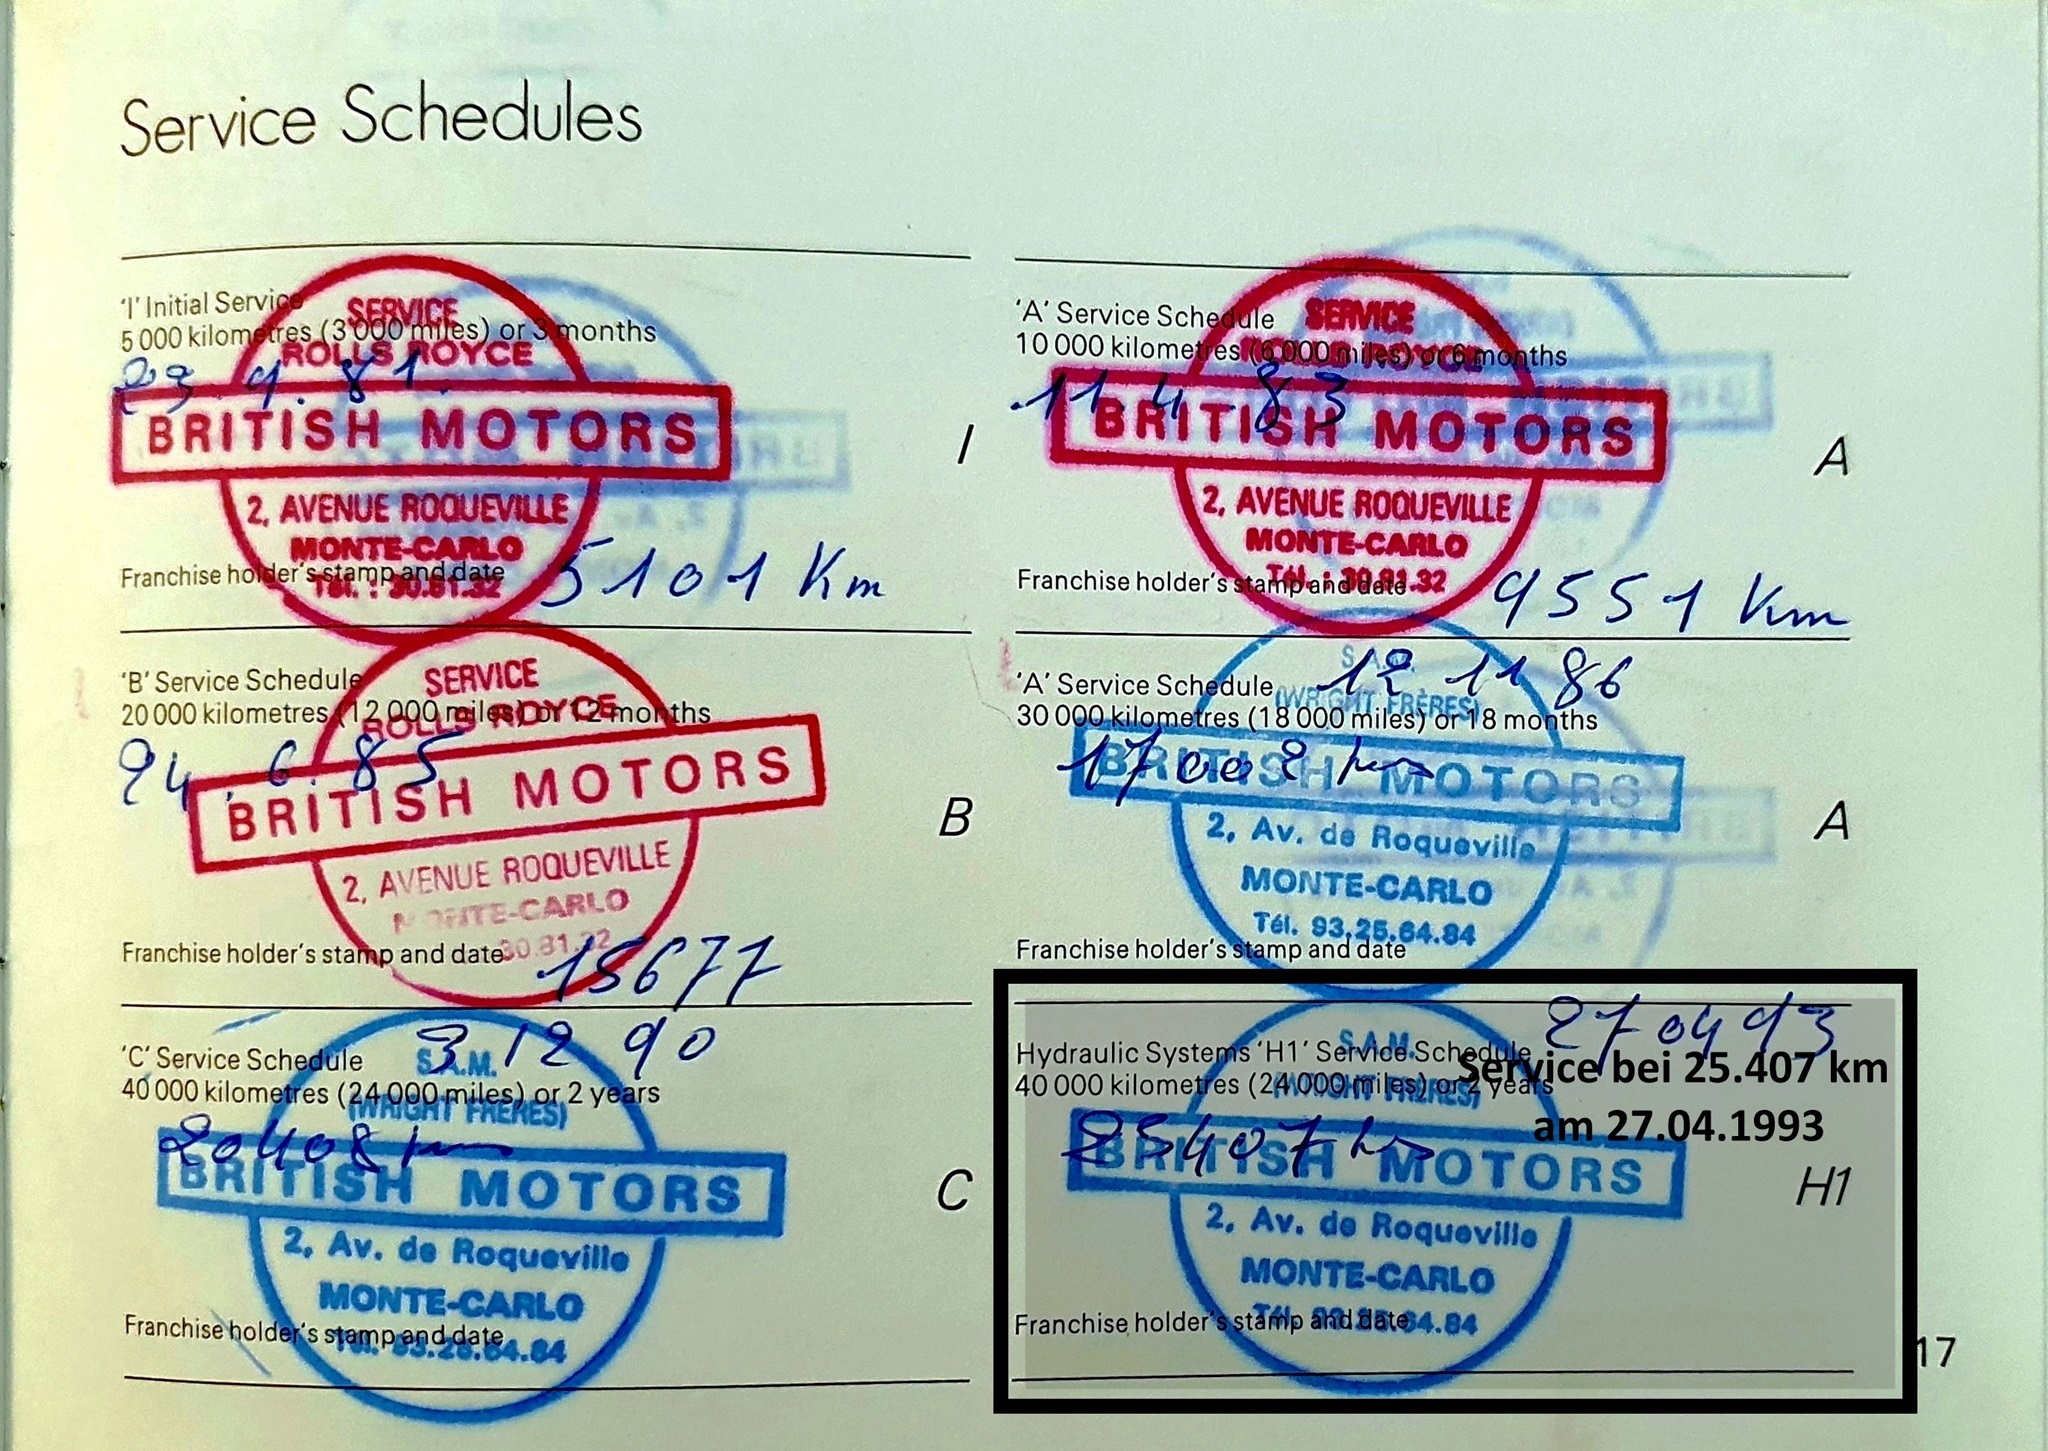 Service Schedules
'I' Initial Service
5 000 kilometres (3 000 miles) or 3 months
23.9.81.
SERVICE
ROLLS ROYCE
BRITISH MOTORS
2, AVENUE ROQUEVILLE
MONTE-CARLO
Tél. : 30.81.32
Franchise holder's stamp and date
5101 Km
I
'A' Service Schedule
10 000 kilometres (6 000 miles) or 6 months
11 4 83
SERVICE
ROLLS ROYCE
BRITISH MOTORS
2, AVENUE ROQUEVILLE
MONTE-CARLO
Tél. : 30.81.32
Franchise holder's stamp and date
9551 Km
A
'B' Service Schedule
20 000 kilometres (12 000 miles) or 12 months
24.6.85
SERVICE
ROLLS ROYCE
BRITISH MOTORS
2, AVENUE ROQUEVILLE
MONTE-CARLO
30.81.32
Franchise holder's stamp and date
15677
B
'A' Service Schedule
12 11 86
30 000 kilometres (18 000 miles) or 18 months
S.A.M.
(WRIGHT FRÈRES)
17002 kms
BRITISH MOTORS
2, Av. de Roqueville
MONTE-CARLO
Tél. 93.25.64.84
Franchise holder's stamp and date
A
'C' Service Schedule
3 12 90
40 000 kilometres (24 000 miles) or 2 years
S.A.M.
(WRIGHT FRÈRES)
20408 kms
BRITISH MOTORS
2, Av. de Roqueville
MONTE-CARLO
Tél. 93.25.64.84
Franchise holder's stamp and date
C
Hydraulic Systems 'H1' Service Schedule
27 04 93
40 000 kilometres (24 000 miles) or 2 years
S.A.M.
(WRIGHT FRÈRES)
Service bei 25.407 km
am 27.04.1993
25407 kms
BRITISH MOTORS
2, Av. de Roqueville
MONTE-CARLO
Tél. 93.25.64.84
Franchise holder's stamp and date
H1
17